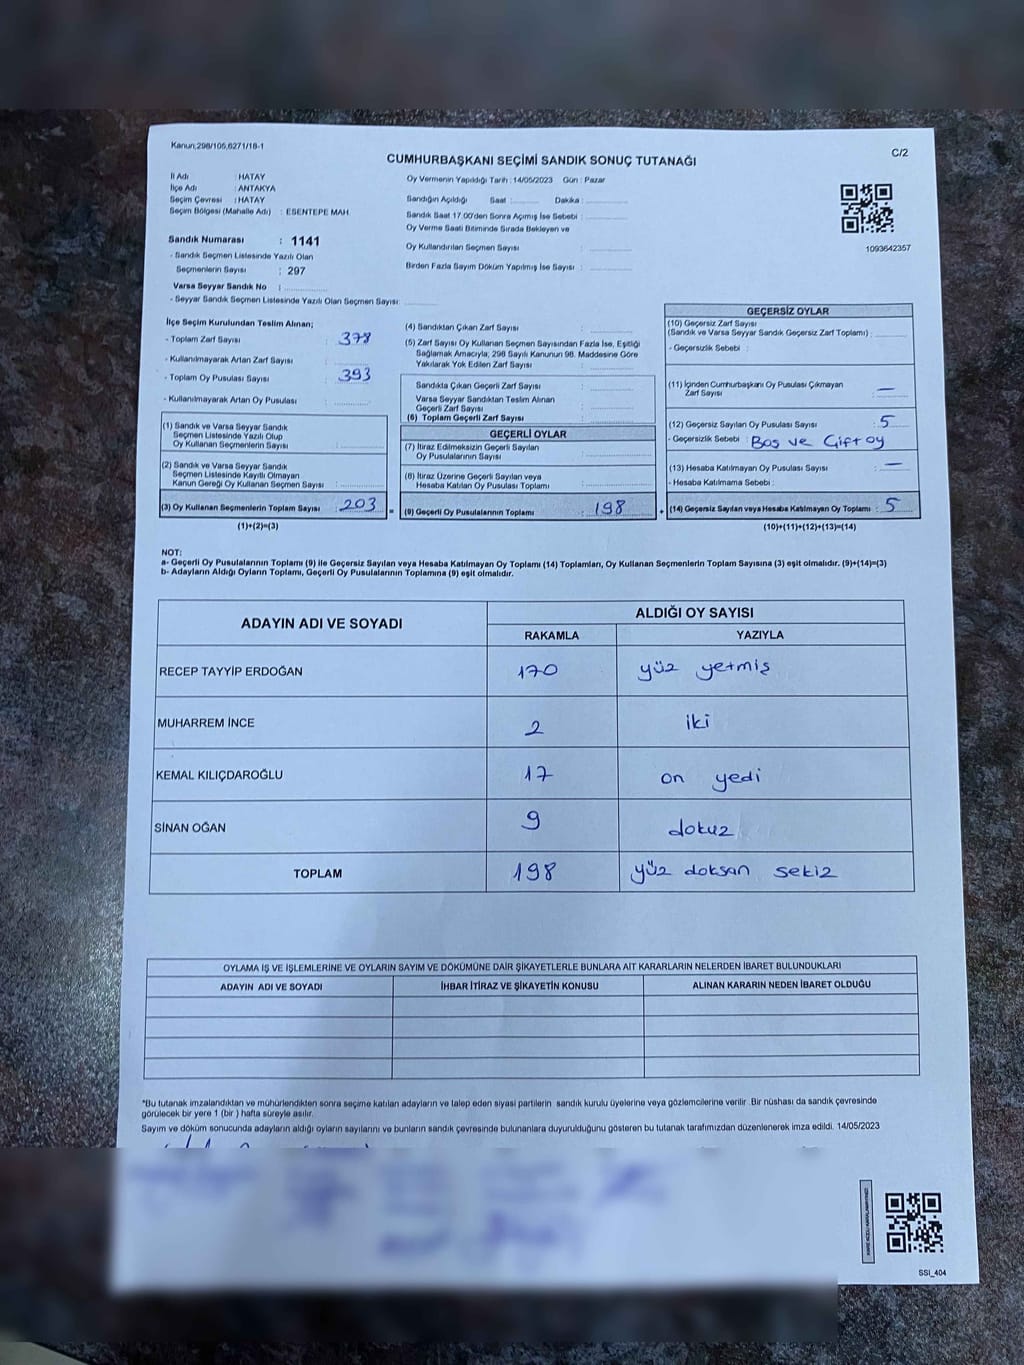 Kanun;298/105,6271/18-1
CUMHURBAŞKANI SEÇİMİ SANDIK SONUÇ TUTANAĞI
C/2
İl Adı : HATAY
İlçe Adı : ANTAKYA
Seçim Çevresi : HATAY
Seçim Bölgesi (Mahalle Adı) : ESENTEPE MAH.
Sandık Numarası : 1141
- Sandık Seçmen Listesinde Yazılı Olan
Seçmenlerin Sayısı : 297
Varsa Seyyar Sandık No :
- Seyyar Sandık Seçmen Listesinde Yazılı Olan Seçmen Sayısı:
Oy Vermenin Yapıldığı Tarih : 14/05/2023 Gün : Pazar
Sandığın Açıldığı Saat : Dakika :
Sandık Saat 17.00'den Sonra Açımış İse Sebebi :
Oy Verme Saati Bitiminde Sırada Bekleyen ve
Oy Kullandırılan Seçmen Sayısı :
Birden Fazla Sayım Döküm Yapılmış İse Sayısı :
1093642357
İlçe Seçim Kurulundan Teslim Alınan;
- Toplam Zarf Sayısı : 378
- Kullanılmayarak Artan Zarf Sayısı :
- Toplam Oy Pusulası Sayısı : 393
- Kullanılmayarak Artan Oy Pusulası :
(1) Sandık ve Varsa Seyyar Sandık
Seçmen Listesinde Yazılı Olup
Oy Kullanan Seçmenlerin Sayısı :
(2) Sandık ve Varsa Seyyar Sandık
Seçmen Listesinde Kayıtlı Olmayan
Kanun Gereği Oy Kullanan Seçmen Sayısı :
(3) Oy Kullanan Seçmenlerin Toplam Sayısı : 203
(1)+(2)=(3)
(4) Sandıktan Çıkan Zarf Sayısı :
(5) Zarf Sayısı Oy Kullanan Seçmen Sayısından Fazla İse, Eşitliği
Sağlamak Amacıyla; 298 Sayılı Kanunun 98. Maddesine Göre
Yakılarak Yok Edilen Zarf Sayısı :
Sandıkta Çıkan Geçerli Zarf Sayısı :
Varsa Seyyar Sandıktan Teslim Alınan
Geçerli Zarf Sayısı :
(6) Toplam Geçerli Zarf Sayısı :
GEÇERLİ OYLAR
(7) İtiraz Edilmeksizin Geçerli Sayılan
Oy Pusulalarının Sayısı :
(8) İtiraz Üzerine Geçerli Sayılan veya
Hesaba Katılan Oy Pusulası Toplamı :
= (9) Geçerli Oy Pusulalarının Toplamı : 198
GEÇERSİZ OYLAR
(10) Geçersiz Zarf Sayısı
(Sandık ve Varsa Seyyar Sandık Geçersiz Zarf Toplamı) :
- Geçersizlik Sebebi :
(11) İçinden Cumhurbaşkanı Oy Pusulası Çıkmayan
Zarf Sayısı : —
(12) Geçersiz Sayılan Oy Pusulası Sayısı : 5
- Geçersizlik Sebebi : Boş ve Çift oy
(13) Hesaba Katılmayan Oy Pusulası Sayısı : —
- Hesaba Katılmama Sebebi :
+ (14) Geçersiz Sayılan veya Hesaba Katılmayan Oy Toplamı : 5
(10)+(11)+(12)+(13)=(14)
NOT:
a- Geçerli Oy Pusulalarının Toplamı (9) ile Geçersiz Sayılan veya Hesaba Katılmayan Oy Toplamı (14) Toplamları, Oy Kullanan Seçmenlerin Toplam Sayısına (3) eşit olmalıdır. (9)+(14)=(3)
b- Adayların Aldığı Oyların Toplamı, Geçerli Oy Pusulalarının Toplamına (9) eşit olmalıdır.
ADAYIN ADI VE SOYADI
ALDIĞI OY SAYISI
RAKAMLA YAZIYLA
RECEP TAYYİP ERDOĞAN 170 yüz yetmiş
MUHARREM İNCE 2 iki
KEMAL KILIÇDAROĞLU 17 on yedi
SİNAN OĞAN 9 dokuz
TOPLAM 198 yüz doksan sekiz
OYLAMA İŞ VE İŞLEMLERİNE VE OYLARIN SAYIM VE DÖKÜMÜNE DAİR ŞİKAYETLERLE BUNLARA AİT KARARLARIN NELERDEN İBARET BULUNDUKLARI
ADAYIN ADI VE SOYADI İHBAR İTİRAZ VE ŞİKAYETİN KONUSU ALINAN KARARIN NEDEN İBARET OLDUĞU
*Bu tutanak imzalandıktan ve mühürlendikten sonra seçime katılan adayların ve talep eden siyasi partilerin sandık kurulu üyelerine veya gözlemcilerine verilir .Bir nüshası da sandık çevresinde
görülecek bir yere 1 (bir ) hafta süreyle asılır.
Sayım ve döküm sonucunda adayların aldığı oyların sayılarını ve bunların sandık çevresinde bulunanlara duyurulduğunu gösteren bu tutanak tarafımızdan düzenlenerek imza edildi. 14/05/2023
SSI_404